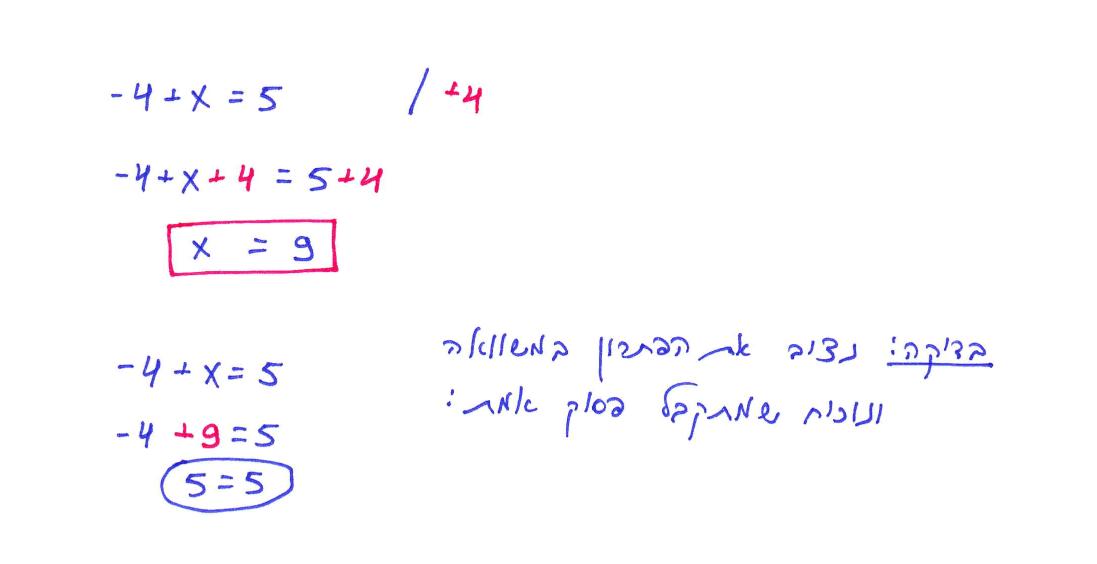 -4+x=5 / +4
-4+x+4=5+4
x = 9
בדיקה: נציב את הפתרון במשוואה
ונוכיח שמתקבל פסוק אמת:
-4+x=5
-4+9=5
5=5